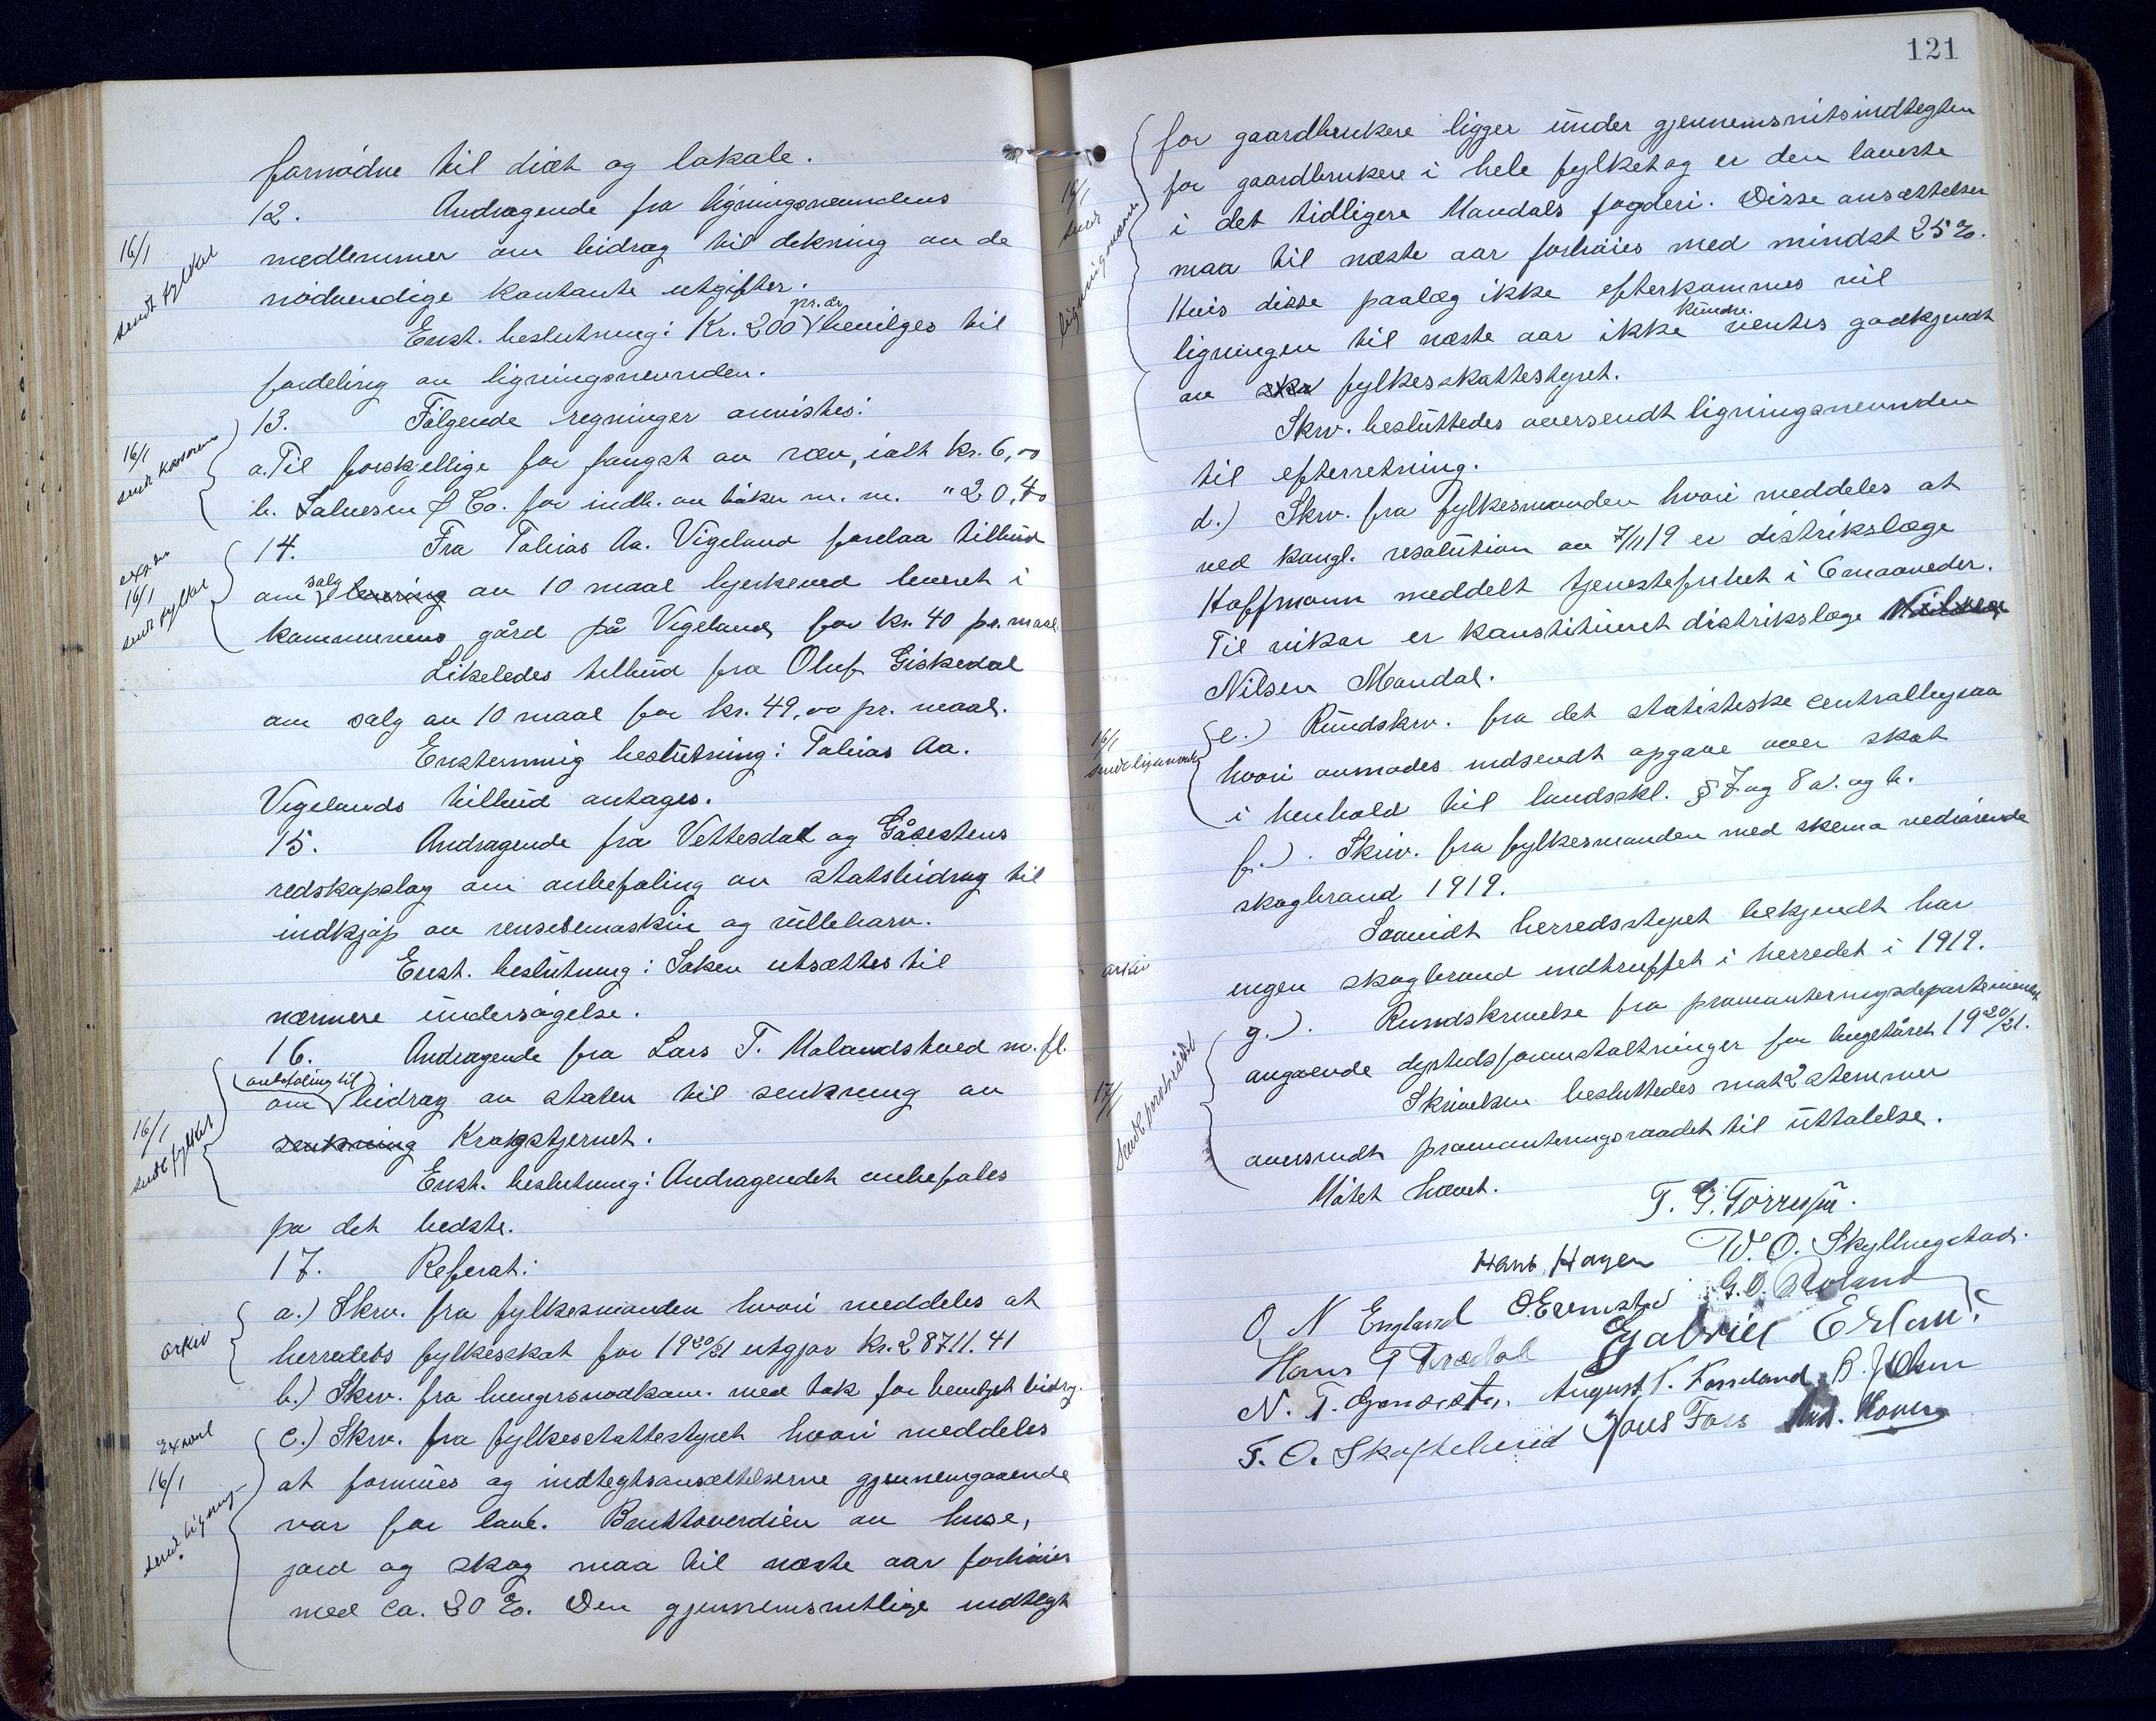 fornødne til diæt og lokale.
12. Andragende fra ligningsnevndens
16/1
sendt fylket
medlemmer om bidrag til dekning av de
nödvendige kontante utgifter.
Enst. beslutning: Kr. 200 pr. år bevilges til
fordeling av ligningsnevnden.
16/1
sendt kasseren
13. Fölgende regninger anvistes:
a. Til forskjellige for fangst av ræv, ialt kr. 6,00
b. Salvesen & Co. for indb. av böker m. m. " 20,40
exp. du
16/1
sendt fylket
14. Fra Tobias Aa. Vigeland forelaa tilbud
om salg levering av 10 maal bjerkeved leveret i
kommunens gård på Vigeland for kr. 40 pr. maal.
Likeledes tilbud fra Oluf Giskedal
om salg av 10 maal for kr. 49,00 pr. maal.
Enstemmig beslutning: Tobias Aa.
Vigelands tilbud antages.
15. Andragende fra Vettesdal og Gåsestens
redskapslag om anbefaling av statsbidrag til
indkjøp av rensemaskin og rulleharv.
Enst. beslutning: Saken utsættes til
nærmere undersøgelse.
16. Andragende fra Lars T. Molandshved m. fl.
16/1
sendt fylket
om (anbefaling til) bidrag av staten til senkning av
senkning Krogstjernet.
Enst. beslutning: Andragendet anbefales
pa det bedste.
17. Referat:
arkiv
a.) Skrv. fra fylkesmanden hvori meddeles at
herredets fylkesskat for 1920/21 utgjør kr. 28711.41
b.) Skrv. fra hungersnødkom. med tak for bevilget bidrag.
16/1
sendt ligning
c.) Skrv. fra fylkesskattestyret hvori meddeles
at formues og indtegtsansættelserne gjennemgaaende
var for lave. Bruttoverdien av huse,
jord og skog maa til næste aar forhøies
med ca. 30 %. Den gjennemsnitlige indtegt
121
16/1
sendt
ligningsnevnd
for gaardbrukere ligger under gjennemsnitsindtegten
for gaardbrukere i hele fylket og er den laveste
i det tidligere Mandals fogderi. Disse ansættelser
maa til næste aar forhøies med mindst 25 %.
Hvis disse paalæg ikke efterkommes vil
ligningen til næste aar ikke kunde ventes godkjendt
av ska fylkesskattestyret.
Skrv. besluttedes oversendt ligningsnevnden
til efterretning.
d.) Skrv. fra fylkesmanden hvori meddeles at
ved kongl. resolution av 7/11 19 er distrikslæge
Hoffmann meddelt tjenestefrihet i 6 maaneder.
Til vikar er konstitueret distrikslæge
Nilsen Mandal.
16/1
sendt lignnevnd
e.) Rundskrv. fra det statistiske centralbyraa
hvori anmodes indsendt opgave over skat
i henhold til landsskl. § 7 og 8 a. og b.
f.). Skriv. fra fylkesmanden med skema vedrørende
skogbrand 1919.
Saavidt herredsstyret bekjendt har
arkiv
ingen skogbrand indtruffet i herredet i 1919.
17/1
g.). Rundskrivelse fra provianteringsdepartementet
angaaende dyrtidsforanstaltninger for budgetåret 1920/21.
Skrivelsen besluttedes mot 2 stemmer
oversendt provianteringsraadet til uttalelse.
Møtet hævet.
Hans Hagen W. O. Skyllingstad.
O N England G. O. Røland
Gabriel
August K. Foseland
Jens Foss